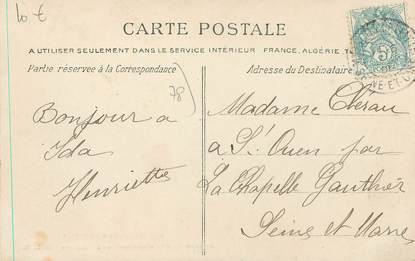 10 €
CARTE POSTALE
A UTILISER SEULEMENT DANS LE SERVICE INTÉRIEUR FRANCE, ALGÉRIE
Partie réservée à la Correspondance
Adresse du Destinataire
78
Bonjour a
Ida
Henriette
Madame Clérau
a St Ouen par
La Chapelle Gauthier
Seine et Marne